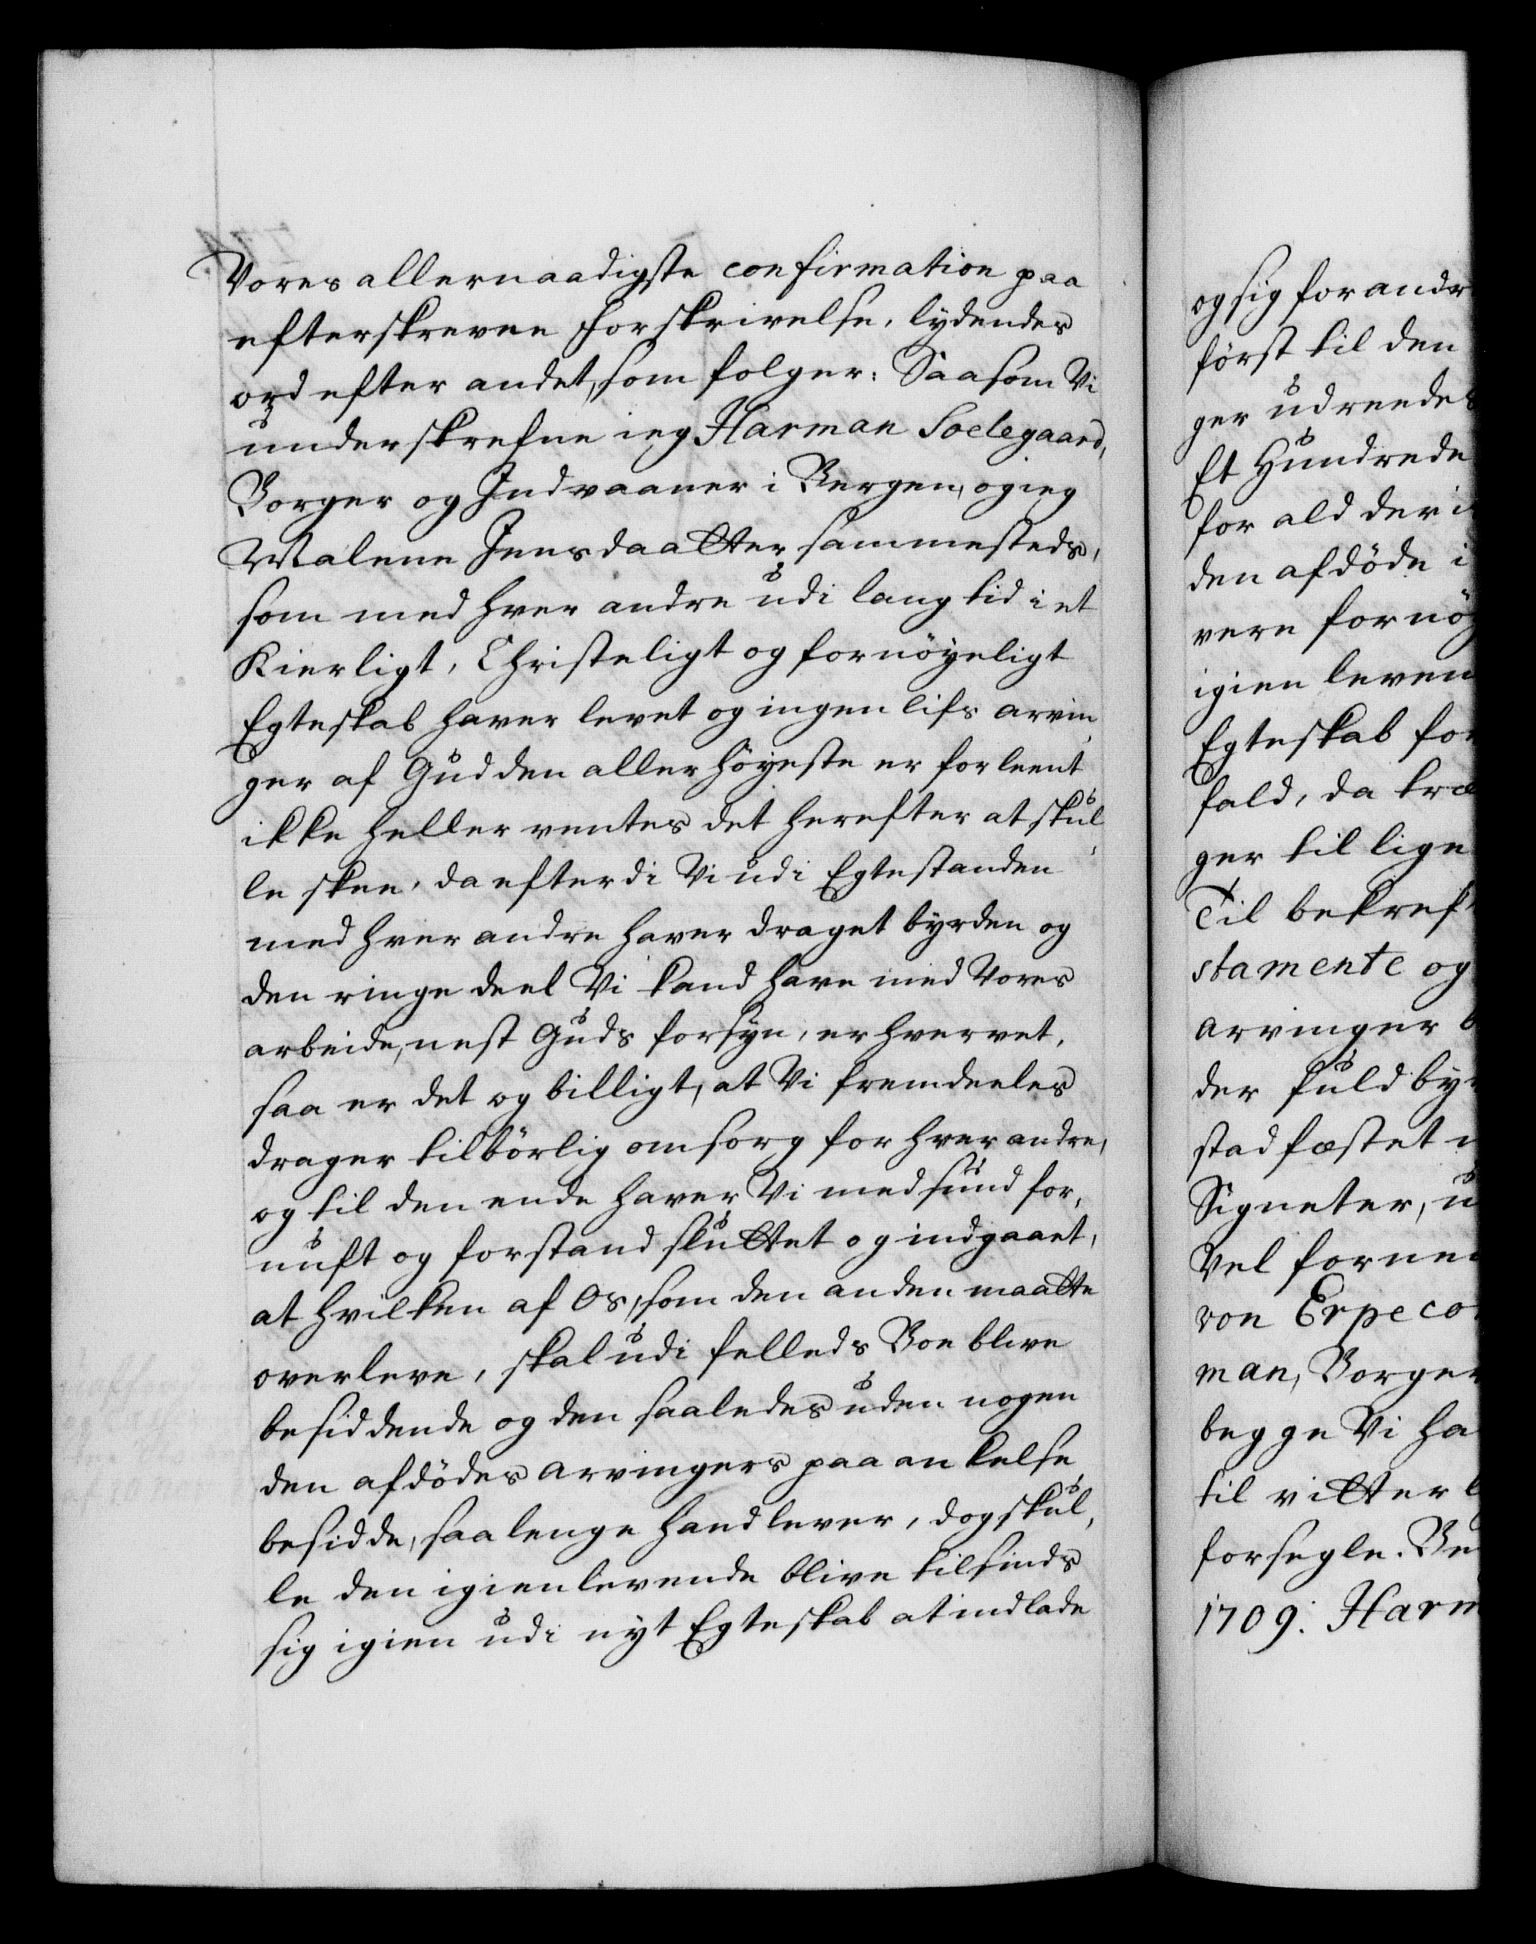 Vores allernaadigste confirmation paa
efterskrevne Forskrivelse, lydendes
ord efter andet, som folger: Saasom Vi
underskrefne ieg Harman Soelegaard,
Borger og Indvaaner i Bergen, og ieg
Malene Jensdaatter sammesteds,
som med hver andre udi lang tid i et
Kierligt, Christeligt og fornöyeligt
Egteskab haver levet og ingen lifs arvin
ger af Gud den allerhöyeste er forleent
ikke heller ventes det herefter at skul
le skee, da efterdi Vi udi Egtestanden
med hver andre haver draget byrden og
den ringe deel Vi kand have med Vores
arbeide, nest Guds forsyn, erhvervet,
saa er det og billigt, at Vi fremdeeles
drager tilbörlig omsorg for hver andre,
og til den ende haver Vi med sund for,
nuft og forstand sluttet og indgaaet,
at hvilken af Os, som den anden maatte
overleve, skal udi felleds Boe blive
besiddende og den saaledes uden nogen
den afdödes arvingers paaankelse
besidde, saa lenge hand lever, dog skul,
le den igienlevende blive tilsinds
sig igien udi nyt Egteskab at indlade
og sig forandr
först til den
ger udreedes
Et Hundrede
for ald der i
den afdöde i
vere fornöy
igien leven
Egteskab for
fald, da træ
ger til lige
Til bekref
stamente og
arvinger b
der fuldby
stadfæstet
Signeter, u
Vel forne
von Erpeco
man, Borger
begge Vi ha
til vitterl
forsegle. Be
1709. Harm